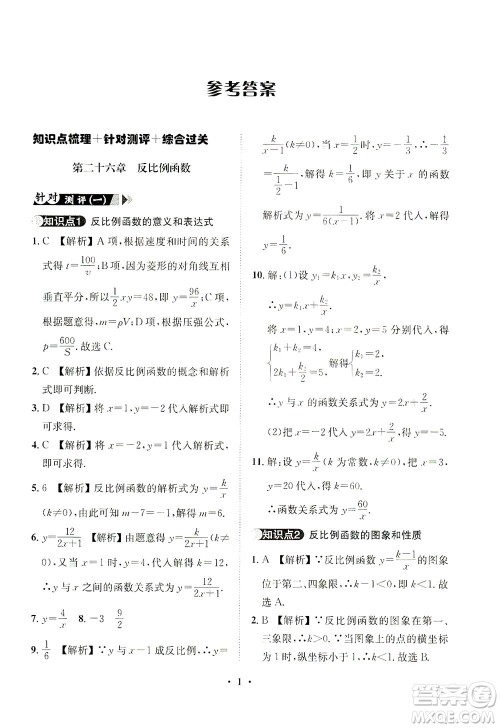 参考答案
知识点梳理＋针对测评＋综合过关
第二十六章　反比例函数
针对测评(一)
知识点1　反比例函数的意义和表达式
1. C 【解析】A项，根据速度和时间的关系
式得 t=100/v；B项，因为菱形的对角线互相
垂直平分，所以 1/2xy=48，即 y=96/x；C项，
根据题意得，m=ρV；D项，根据压强公式，
p=600/S. 故选C.
2. C 【解析】依据反比例函数的概念和解析
式即可判断.
3. D 【解析】将 x=1，y=-2 代入解析式即
可求得.
4. C 【解析】将 x=-1，y=2 代入解析式即
可求得.
5. 6 【解析】设反比例函数的解析式为 y=k/x
(k≠0)，把点代入可得 m=6.
6. y=12/(2x+1) 【解析】由题意得 y=12/(2x+1).
∴y 与 x 之间的函数关系式为 y=12/(2x+1).
7. y=4/x　8. -3　9/2
9. 1/6 【解析】∵y 与 x-1 成反比例函数，∴y=
k/(x-1)(k≠0). ∵当 x=1/2 时，y=-1/3，∴-1/3=
k/(1/2-1)，解得 k=1/6. ∴函数的解析式为 y=
(1/6)/(x-1). 当 x=2 时，代入解析式得 y=(1/6)/(2-1)
=1/6.
10. 解：(1)设 y₁=k₁x，y₂=k₂/x，则 y=k₁x+k₂/x.
∴将 x=1，y=4；x=2，y=5 分别代入，得
{k₁+k₂=4，
2k₁+k₂/2=5，　解得{k₁=2，
k₂=2.
∴y 与 x 的函数关系式为 y=2x+2/x.
(2)把 x=4 代入，得 y=17/2.
11. 解：设 y=k/x(k 为常数，k≠0)，把 x=10，
y=6 代入 y=k/x，得 k=60.
∴函数关系式为 y=60/x.
知识点2　反比例函数的图象和性质
1. A 【解析】∵反比例函数 y=(k-1)/x 的图象
位于第二、四象限，∴k-1<0，即 k<1. 故
选A.
2. B 【解析】∵反比例函数的图象在第一、三
象限，∴k>0. ∵此图象上的点的横坐标
为1时，纵坐标小于1，∴k<1×1=1，∴k
· 1 ·
答案圈